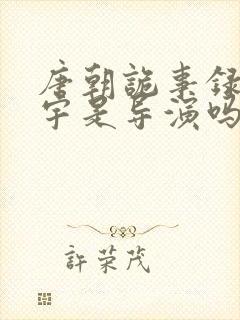 唐朝詭事录
宇是导演吗
許荣茂